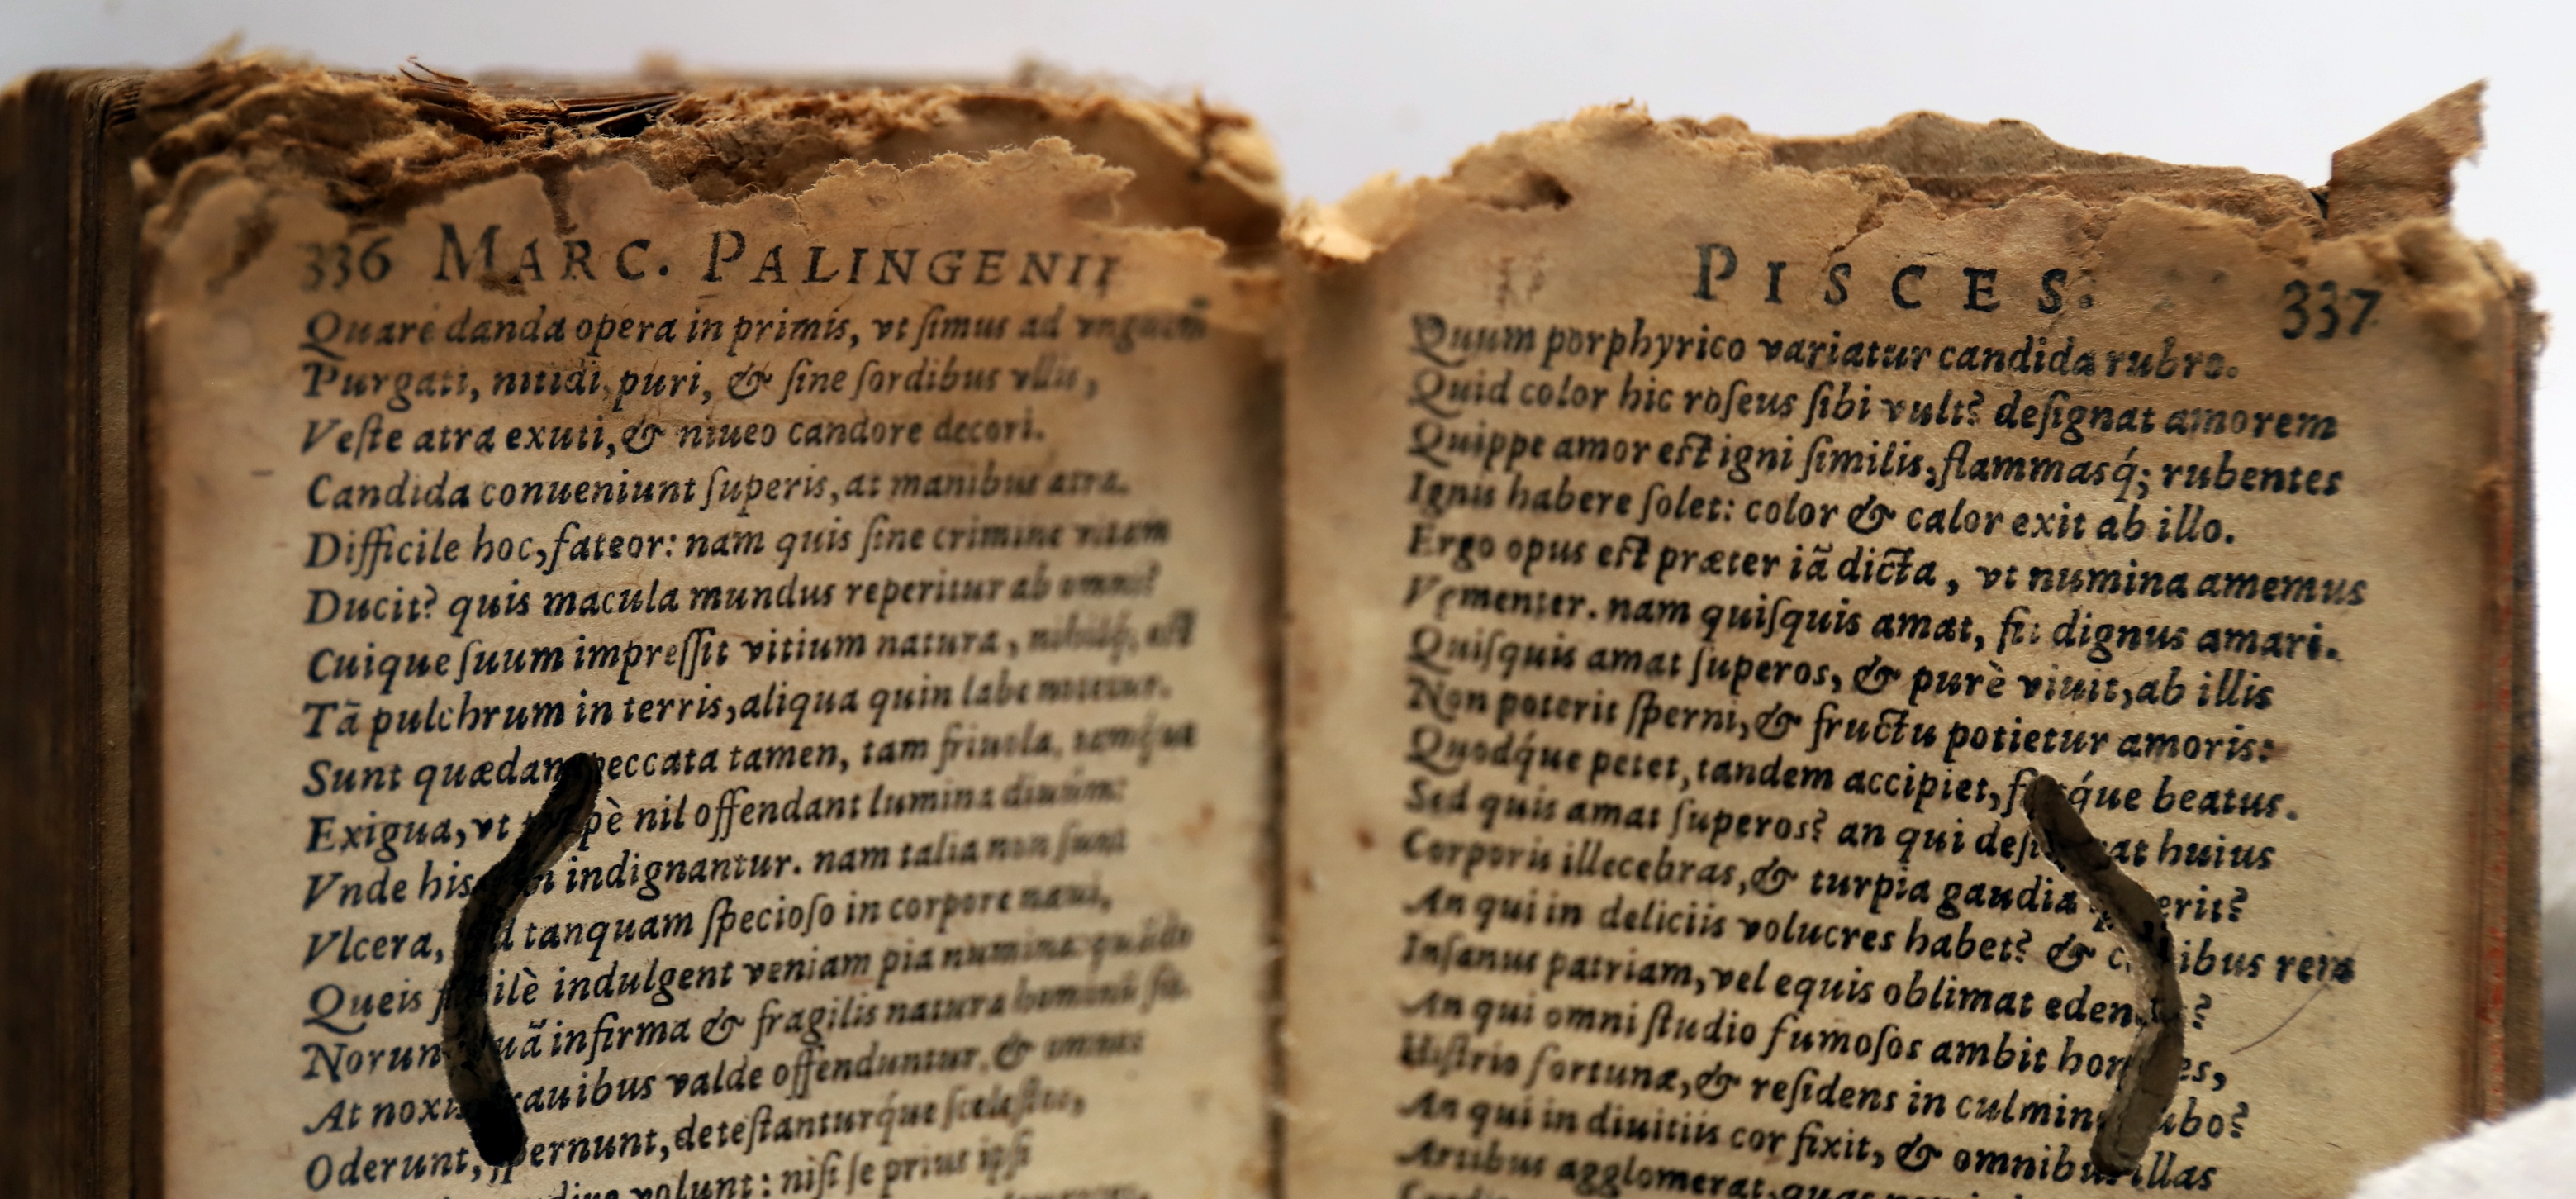 336 MARC. PALINGENII
Quare danda opera in primis, vt ſimus ad vnguem
Purgati, nitidi, puri, & ſine ſordibus vllis,
Veſte atra exuti, & niueo candore decori.
Candida conueniunt ſuperis, at manibus atra.
Difficile hoc, fateor: nam quis ſine crimine vitam
Ducit? quis macula mundus reperitur ab omni?
Cuique ſuum impreſſit vitium natura, nihilq́; eſt
Tã pulchrum in terris, aliqua quin labe notetur.
Sunt quædam peccata tamen, tam friuola, tamq́ue
Exigua, vt pè nil offendant lumina diuûm:
Vnde his indignantur. nam talia non ſunt
Vlcera, tanquam ſpecioſo in corpore næui,
Queis ilè indulgent veniam pia numina: quãdo
Norun uã infirma & fragilis natura hominũ ſit.
At noxi rauibus valde offenduntur, & omnes
Oderunt, ſpernunt, deteſtanturq́ue ſceleſtos,
volunt: niſi ſe prius ipſi
PISCES. 337
Quum porphyrico variatur candida rubro.
Quid color hic roſeus ſibi vult? deſignat amorem
Quippe amor eſt igni ſimilis, flammasq́; rubentes
Ignis habere ſolet: color & calor exit ab illo.
Ergo opus eſt præter iã dicta, vt numina amemus
Vementer. nam quiſquis amat, fit dignus amari.
Quiſquis amat ſuperos, & purè viuit, ab illis
Non poterit ſperni, & fructu potietur amoris:
Quodq́ue petet, tandem accipiet, q́ue beatus.
Sed quis amat ſuperos? an qui deſi at huius
Corporis illecebras, & turpia gaudia erit?
An qui in deliciis volucres habet? & c ibus rem
Inſanus patriam, vel equis oblimat eden ?
An qui omni ſtudio fumoſos ambit hon es,
Hiſtrio fortunæ, & reſidens in culmin bo?
An qui in diuitiis cor fixit, & omnibus illas
Artibus agglomerat, quas